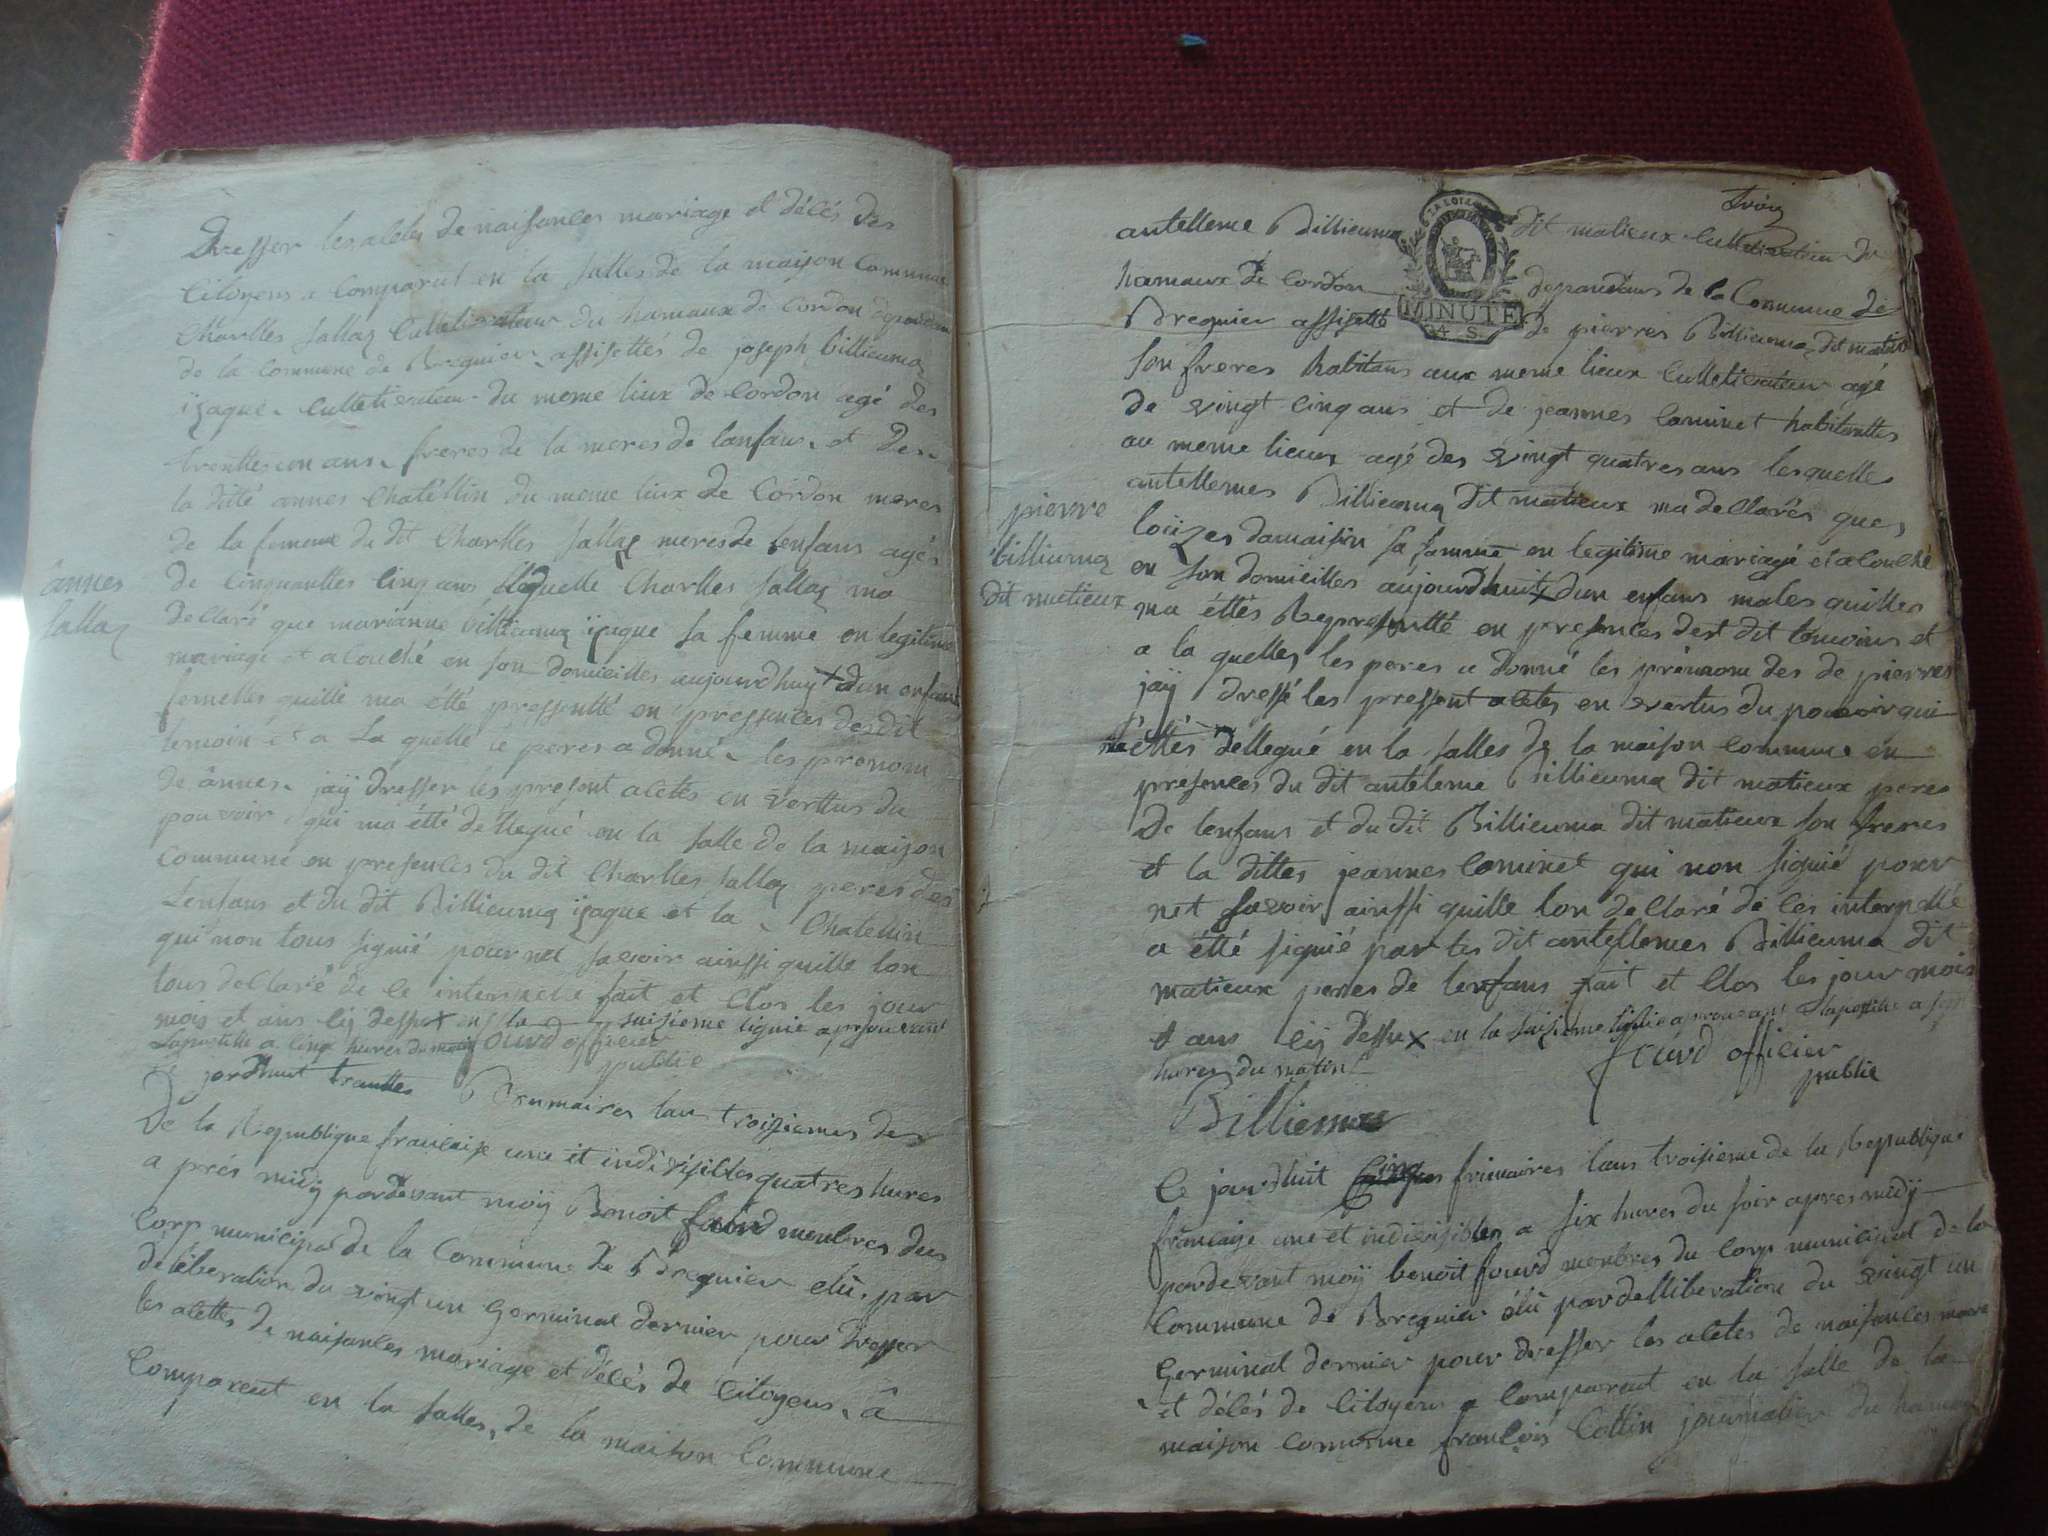 Dresser les actes de naisances mariage et décés des
Citoyens a comparut en la salles de la maison Commune
Charlles sallaz Culletivateur du hamaux de Cordon dependans
de la Commune de Bregnier assisettés de joseph billiemaz
izaque Culletivateur du meme liux de Cordon agé des
trenttes un ans freres de la meres de lanfans et des
la ditte annes Chatellin du meme liux de Cordon meres
de la femme du dit Charlles sallaz meres de lenfans agés
annes
sallaz
de Cinquanttes Cinq ans laquelle Charlles sallaz ma
dellaré que marianne billiemaz izaque sa femme en legitime
mariage et acouché en son domicilles aujourdhuy + dun enfans
femelles quille ma étté pressentté en pressences desdit
temoin et a la quelle le peres a donné les prenom
de ânnes jaÿ dresser les present actes en verttus du
pouvoir qui ma étté dellegué en la salle de la maison
Commune en presences du dit Charlles sallaz peres des
Lenfans et du dit Billiemaz izaque et la Chatellin
qui non tous signié pour net savoir ainssi quille lon
tous dellaré de ce interpellé fait et Clos les jour
mois et ans cÿ dessux en la suisieme lignie aprouvant
lapostille a cinq hures du matin fourd officier
publie
Ce jordhuit trantte Brumaires lan troisiemes des
De la Republique francaise une et indivisibles quatres hures
a prés midÿ pardevant moÿ Benoit fourd membres du
Corp municipal de la Commune de Bregnier elù par
deliberation du vingt un Germinal dernier pour dresser
les acttes de naisances mariage et décés de Citoyens â
Comparent en la salles de la maison Commune
antelleme Billiemaz dit matieux Culletivateur du
hamaux de Cordon dependans de la Commune de
MINUTE
4 S.
Bregnier assisetté de pierres Billiemaz dit matieux
son freres habitans aux meme lieux Culletivateur agé
de vingt cinq ans et de jeannes Cominet habitanttes
au meme lieux agé des vingt quatres ans lesquelles
antellemes Billiemaz dit matieux ma dellarés ques
pierre
billiemaz
dit matieux
loüizes damaisin sa famme en legitime mariagé et acouché
en son domicilles aujourdhuit + dun enfans males quilles
ma éttés Represantté en presences dest dit temoins et
a la quelles les peres a donné les prénom des de pierres
jaÿ dressé les pressent actes en vertus du pouvoir qui
ma éttés dellegué en la salles de la maison Commune en
présences du dit antéleme Billiemaz dit matieux peres
de lenfans et du dit Billiemaz dit matieux son freres
et la dittes jeannes Cominet qui non signié pour
net savoir ainssi quille lon dellaré de ces interpellé
a étté signié par les dit antellemes Billiema dit
matieux peres de lenfans fait et Clos les jour mois
et ans cÿ dessux en la suisieme lignie aprouvant lapostille a sept
hures du matin fourd officier
publie
Billiemaz
Ce jourdhuit Cinqs frimaires lans troisieme de la Republique
francaise une et indivisibles a six hures du soir apres midÿ
pardevant moÿ benoit fourd membres du Corp municipal de la
Commune de Bregnier élù par delliberation du vingt un
Germinal dernier pour dresser les actes de naisances mare
et décés de Citoyens a Comparut en la salle de la
maison Commune françois Collin journalier du hamau